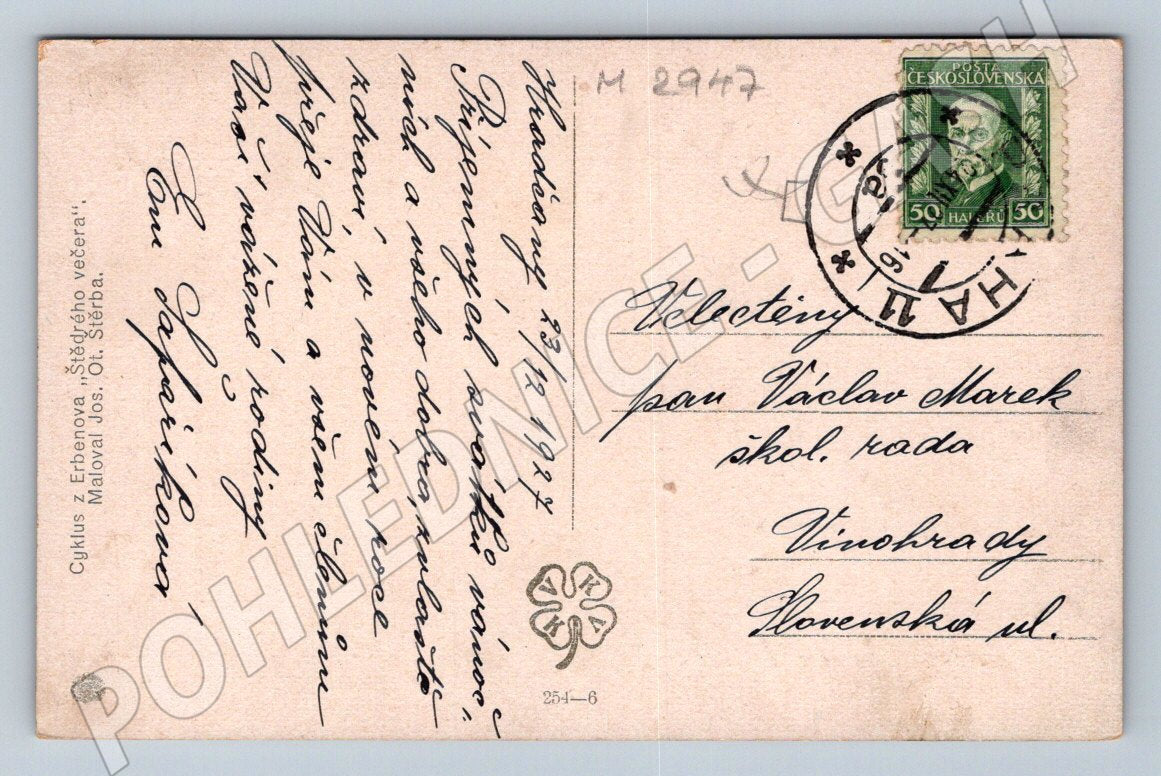 Hradčany 23/12 1927
Příjemných svátků vánoč-
ních a všeho dobra, zvláště
zdraví v novém roce
přeje Vám a všem členům
Vaší vážené rodiny
Em. Šafaříková
Cyklus z Erbenova „Štědrého večera".
Maloval Jos. Ot. Štěrba.
M 2947
POŠTA
ČESKOSLOVENSKA
50 HALÉŘŮ 50
HA 11
Velectěný
pan Václav Marek
škol. rada
Vinohrady
Slovenská ul.
V K
K V
254—6
POHLEDNICE -